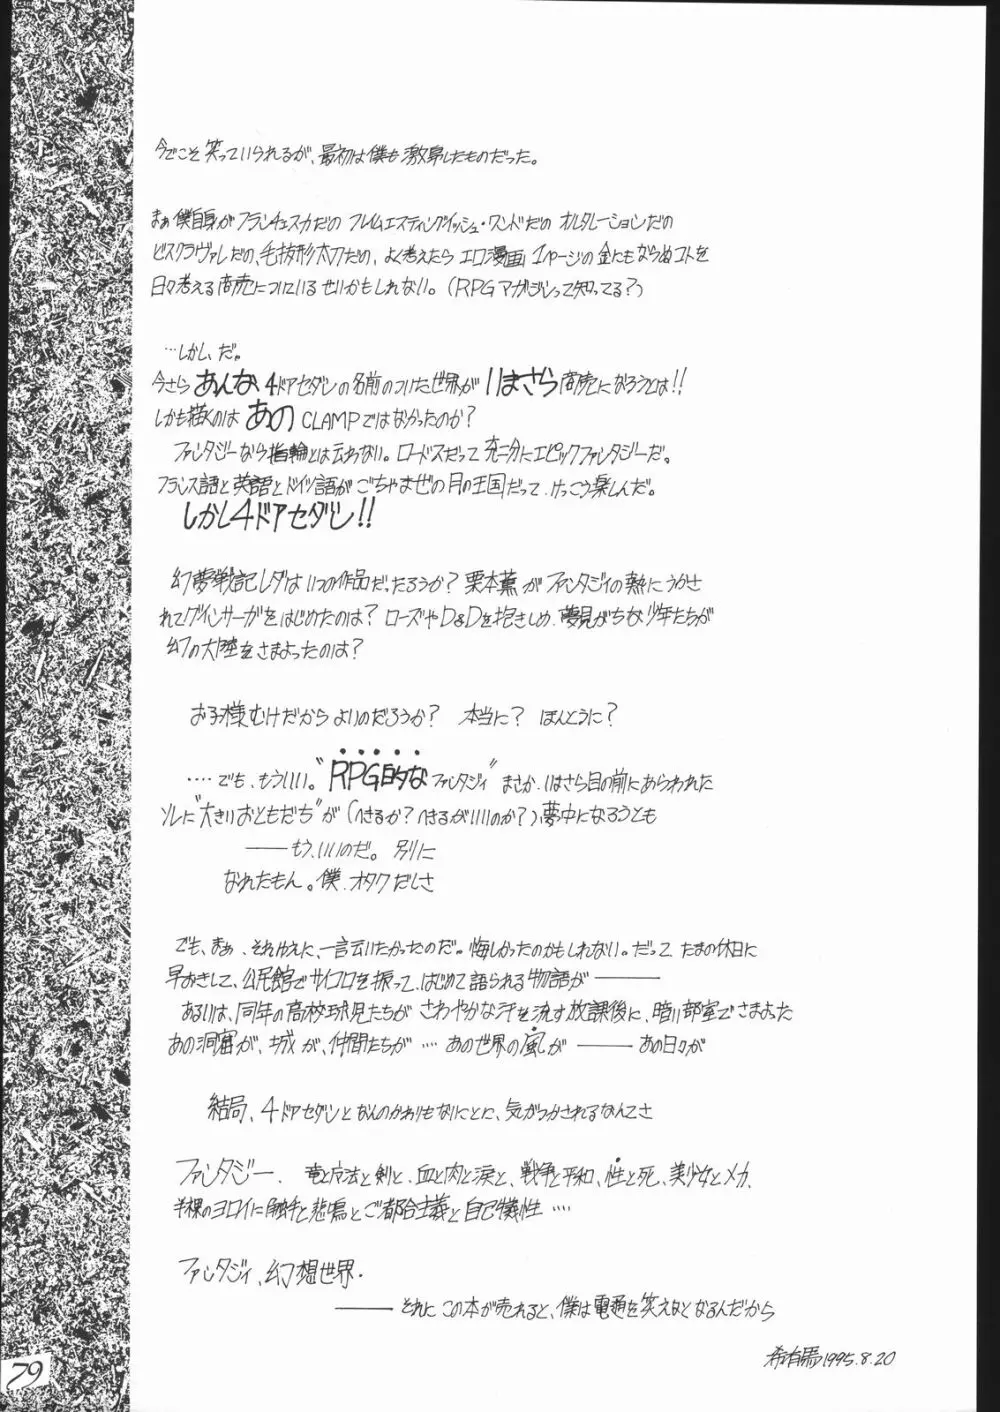 今でこそ笑っていられるが、最初は僕も激昂したものだった。
まぁ僕自身がフランチェスカだの フレイムエスティングイッシュ・ワンドだの オルタレーションだの
ビスクラヴァレだの、毛抜形太刀だの、よく考えたら エロ漫画 1ページの金にもならぬコトを
日々考える商売についているせいかもしれない。(RPGマガジンって知ってる?)
…しかし、だ。
今さら あんな 4ドアセダンの名前のついた世界が いまさら 商売になろうとは!!
しかも描くのは あの CLAMPではなかったのか?
ファンタジーなら指輪とは云わない。ロードスだって充分にエピックファンタジーだ。
フランス語と英語とドイツ語がごちゃまぜの月の王国だって、けっこう楽しんだ。
しかし4ドアセダン!!
幻夢戦記レダはいつの作品だったろうか? 栗本薫がファンタジィの熱にうかさ
れてグインサーガをはじめたのは? ローズやD&Dを抱きしめ、夢見がちな少年たちが
幻の大陸をさまよったのは?
お子様むけだからよいのだろうか? 本当に? ほんとうに?
‥‥でも、もういい。“RPG的なファンタジィ”まさか、いまさら目の前にあらわれた
ソレに“大きいおともだち”が(へきるか?へきるがいいのか?)夢中になろうとも
――もう、いいのだ。別に
なれたもん。僕、オタクだしさ
でも、まぁ、それゆえに、一言云いたかったのだ。悔しかったのかもしれない。だって、たまの休日に
早おきして、公民館でサイコロを振って、はじめて語られる物語が――
あるいは、同年の高校球児たちが さわやかな汗を流す放課後に、暗い部室でさまよった
あの洞窟が、城が、仲間たちが ‥‥ あの世界の風が ―― あの日々が
結局、4ドアセダンとなんのかわりもないことに、気がつかされるなんてさ
ファンタジー、竜と魔法と剣と、血と肉と涙と、戦争と平和、性と死、美少女とメカ、
半裸のヨロイに触手と悲鳴とご都合主義と自己犠牲‥‥
ファンタジィ、幻想世界・
――それに この本が売れると、僕は電通を笑えなくなるんだから
希有馬 1995.8.20
79